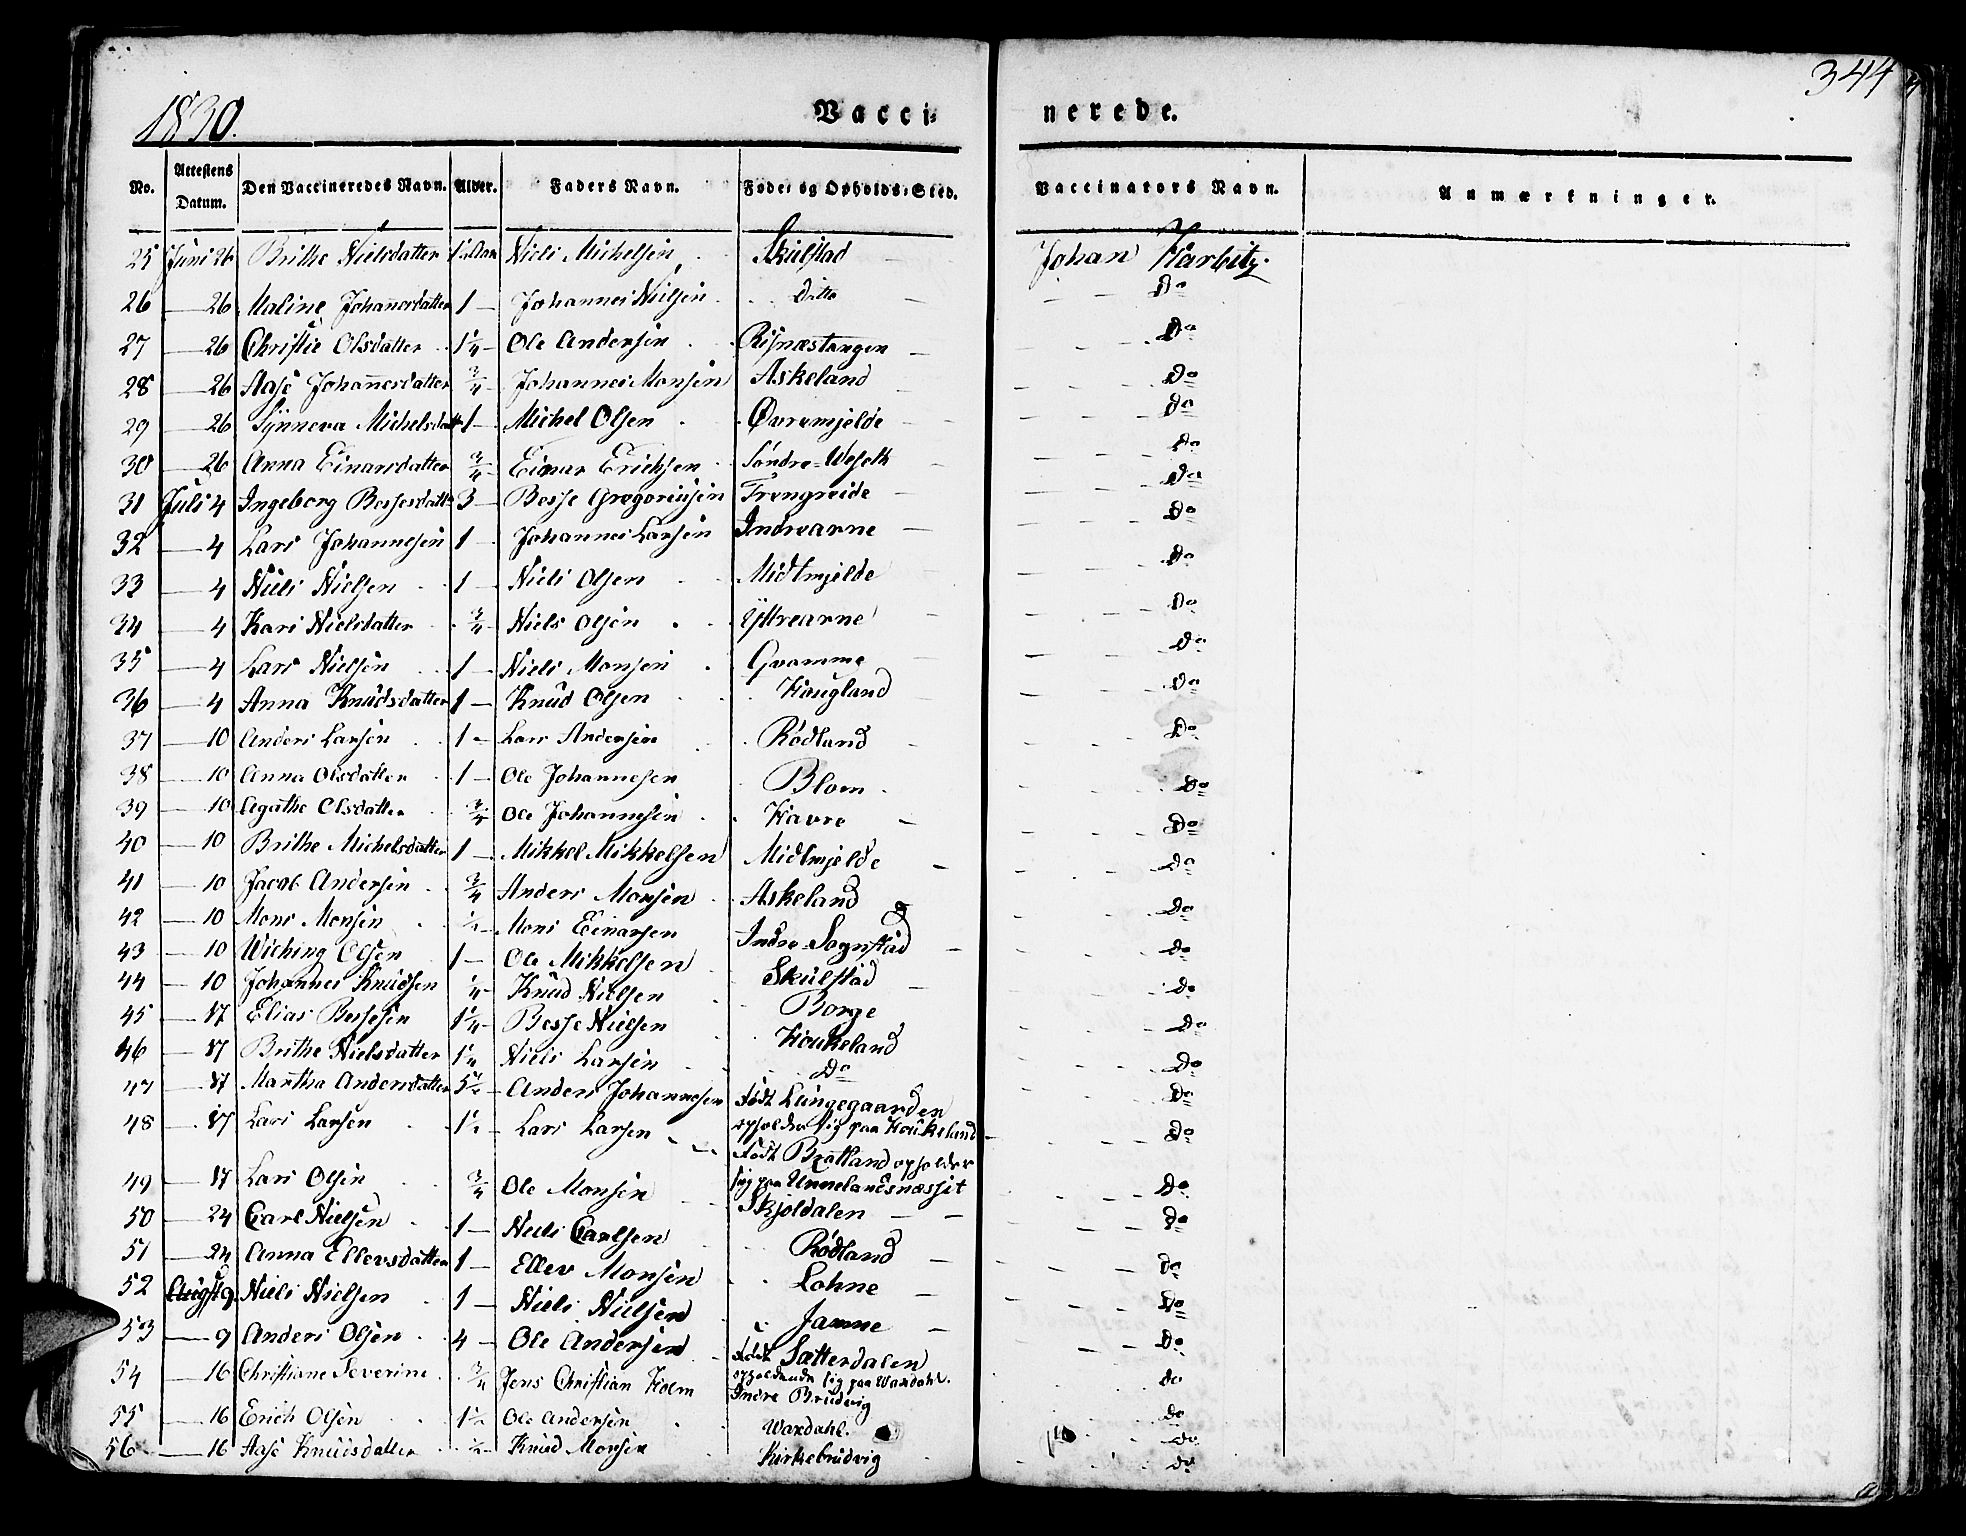 344
1830.
Vacci-
nerede.
No. Attestens Datum. Den Vaccineredes Navn. Alder. Faders Navn. Føde- og Opholds-Sted. Vaccinators Navn. Anmærkninger.
25 Juni 26 Brithe Nielsdatter Niels Michelsen Skulstad Johan Harbitz.
26 — 26 Maline Johannesdatter 1 — Johannes Nielsen Ditto — Do
27 — 26 Christie Olsdatter 1 1/4 — Ole Andersen Risnæstangen — Do
28 — 26 Aase Johannesdatter 3/4 — Johannes Monsen Askeland — Do
29 — 26 Synneva Michelsdatt 1 — Michel Olsen Øvremjelde — Do
30 — 26 Anna Einarsdatter 3/4 — Einar Erichsen Søndre- Do
31 Juli 4 Ingeborg Bessesdatt 3 — Besse Gregoriusen Trengreide — Do
32 — 4 Lars Johannesen 1 — Johannes Larsen Indrearne — Do
33 — 4 Niels Nielsen 1 — Niels Olsen Midtmjelde Do
34 — 4 Kari Nielsdatter 3/4 — Niels Olsen Yttrearne — Do
35 — 4 Lars Nielsen 1 — Niels Monsen Gramme — Do
36 — 4 Anna Knudsdatter 1 — Knud Olsen Haugland — Do
37 — 10 Anders Larsen 1 — Lars Andersen Rødland — Do
38 — 10 Anna Olsdatter 1 — Ole Johannesen Blom Do
39 — 10 Agathe Olsdatter 3/4 — Ole Johannesen Havre — Do
40 — 10 Brithe Michelsdatter 1 — Mikkel Mikkelsen Midtmjelde — Do
41 — 10 Jacob Andersen 3/4 Anders Monsen Askeland Do
42 — 10 Mons Monsen 1/2 — Mons Einarsen Indre-Sognstad — Do
43 — 10 Wiching Olsen 1 — Ole Mikkelsen Skulstad — Do
44 — 10 Johannes Knudsen 1/4 — Knud Nielsen Borge Do
45 — 17 Elias Bessesen 1 1/4 — Besse Nielsen Houkeland Do
46 — 17 Brithe Nielsdatter Niels Larsen Do Do
47 — 17 Martha Andersdatter 5 1/2 — Anders Johannesen Født Lungegaarden
opholder sig paa Houkeland — Do
48 — 17 Lars Larsen 1 1/2 — Lars Larsen — Født Bratland opholder
sig paa Unnelandsnæsset Do
49 — 17 Lars Olsen 3/4 Ole Monsen — Skjoldalen — — Do
50 — 24 Carl Nielsen 1 — Niels Carlsen Rødland — Do
51 — 24 Anna Ellevsdatter 1 — Ellev Monsen Lohne — Do
52 August 9 Niels Nielsen 1 — Niels Nielsen Janne — Do
53 — 9 Anders Olsen 4 — Ole Andersen Født Sætterdalen
opholdende sig paa Wardahl. Do
54 — 16 Christiane Severine 3/4 Jens Christian Holm Indre Brudvig Do
55 — 16 Erich Olsen 1 1/2 Ole Andersen Wardahl. Do
56 — 16 Aase Knudsdatter 1/2 — Knud Monsen Kirkebrudvig Do